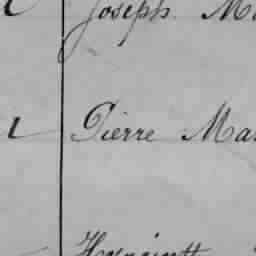 Joseph Ma
1 Pierre Mar
Hyacinth